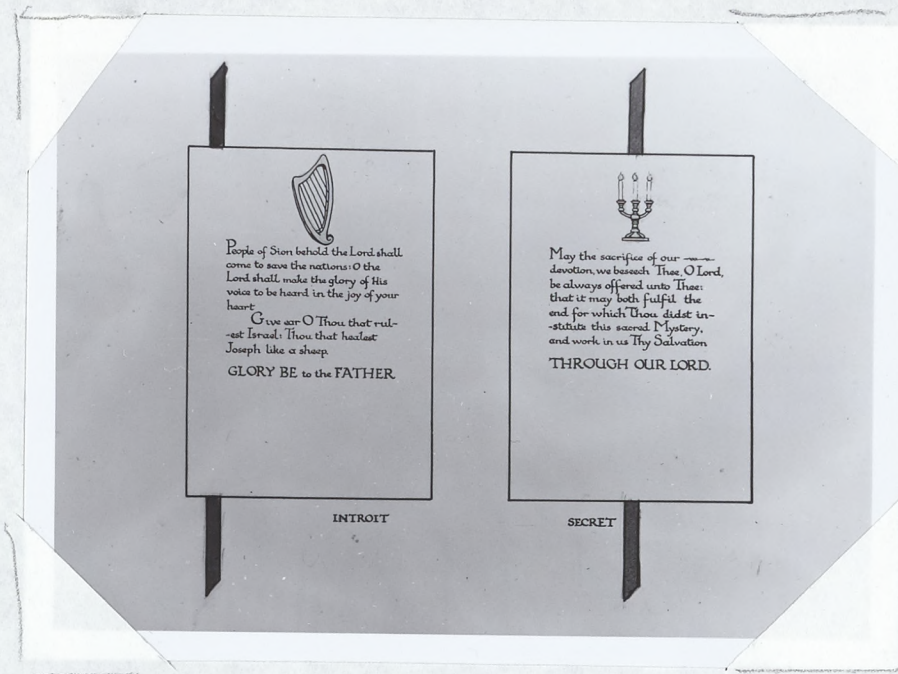 People of Sion behold the Lord shall
come to save the nations: O the
Lord shall make the glory of His
voice to be heard in the joy of your
heart
Give ear O Thou that rul-
-est Israel: Thou that healest
Joseph like a sheep.
GLORY BE to the FATHER
INTROIT
May the sacrifice of our
devotion, we beseech Thee, O Lord,
be always offered unto Thee:
that it may both fulfil the
end for which Thou didst in-
-stitute this sacred Mystery,
and work in us Thy Salvation
THROUGH OUR LORD.
SECRET